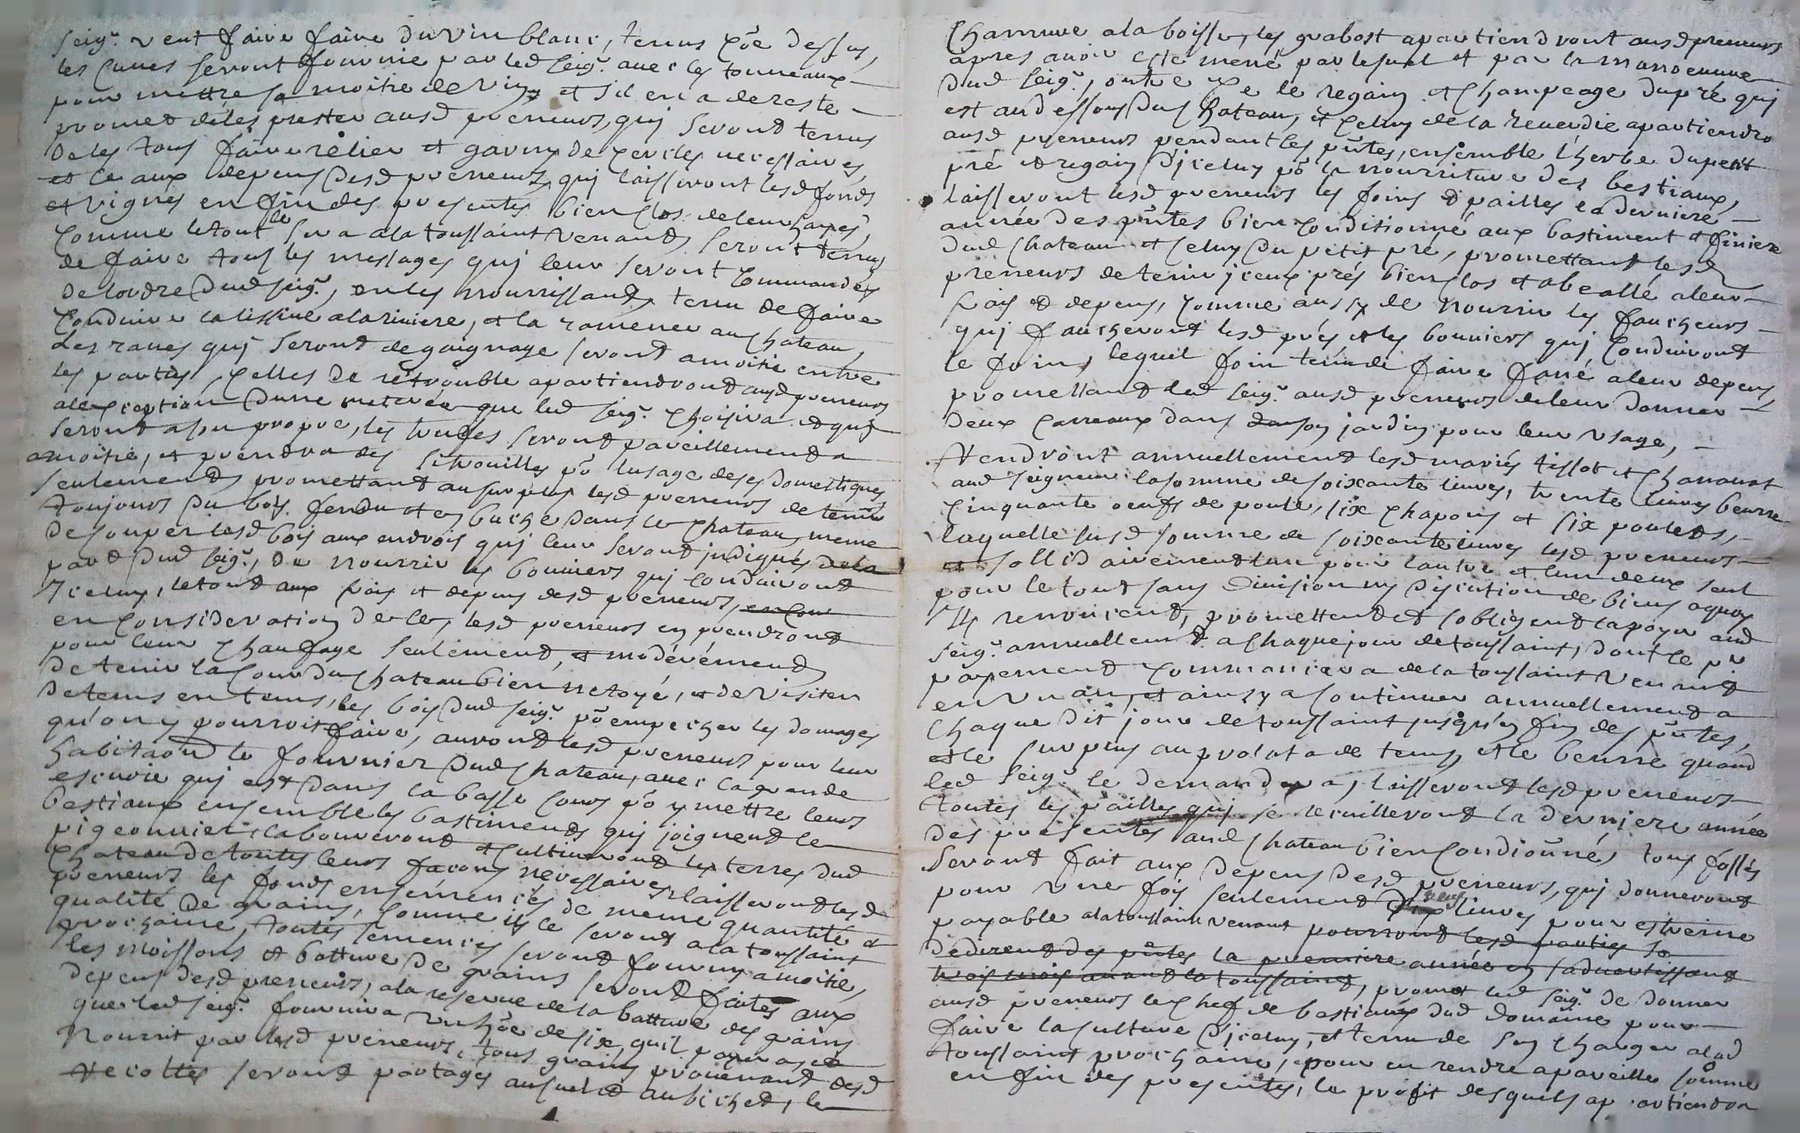 Seigr. veut faire faire du vin blanc, tenus co͞e dessus,
les cuves seront fournie par led seigr. avec les tonneaux
pour mettre sa moitié de vin, et s'il en a de reste
promet de les prester ausd preneurs, qui seront tenus
de les tous faire rélier et garny de cercles necessaires
et ce aux depens desd preneurs, qui laisseront lesd fonds
et vignes en fin des presentes bien clos de leur hayes,
comme le tout le sera a la toussaint venant, seront tenus
de faire tous les messages qui leur seront commandés
de lordre dud seigr., en les nourrissant, tenu de faire
conduire la lissive a la riviere, et la ramener au chateau,
Les raves qui seront de gaignage seront a moitié entre
les parties, celles de retrouble apartiendront ausd preneurs
a lexception dune que led seigr. choisira et qui
seront a son propre, les truffes seront pareillement a
amoitié, et prendra des sitrouilles po͞ lusage de ses domestiques
seulement, promettant au surplus lesd preneurs de tenir
toujours du bois fendu et en buche dans le chateau, meme
de couper lesd bois aux endrois qui leur seront indiqués de la
part dud seigr., de nourrir les bouviers qui conduiront
Iceluy, le tout aux frais et depens desd preneurs, en con
en consideration de ce, lesd preneurs en prendront
pour leur chauffage seulement, et modérément
de tenir la cour du chateau bien netoyé, et de visiter
de tems en tems, les bois dud seigr. po͞ empecher les domages
qu'on y pourroit faire, auront lesd preneurs pour leur
habitaon͞ le fournier dud chateau, avec la grande
escurie qui est dans la basse cour po͞ y mettre leurs
bestiaux ensemble les bastiments qui joignent le
pigeonnier, laboureront et cultiveront les terres dud
chateau de toutes leurs façons necessaires, laisseront lesd
preneurs les fonds ensémencés de meme quantité et
qualité de grains, comme ils le seront a la toussaint
prochaine, toutes semences seront fourny a moitié,
les moissons et batture de grains seront faites aux
depens desd preneurs, a la reserve de la batture des grains
que led seigr. fournira un ho͞e de six, quil payera et
nourrit par lesd preneurs, tous grains provenant desd
recoltes seront partagés au et au bichet, le
Chanvre a la boisse, les grabost apartiendront ausd preneurs
apres avoir esté mené par lesuel et par la manoeuvre
dud seigr., outre ce le regain et champeage du pré qui
est au dessous dud chateau, et celuy de la reverdie apartiendra
ausd preneurs pendant les pn͞tes, ensemble l'herbe du petit
pré et regain diceluy po͞ la nourriture des bestiaux,
laisseront lesd preneurs les foins et pailles la derniere
année des pn͞tes bien conditionné aux bastiment et finiere
dud chateau et celuy du petit pré, promettant lesd
preneurs de tenir jceux prés bien clos et abeallé a leur
frais et depens, comme aussy de nourrir les faucheurs
qui faucheront lesd prés et les bouviers qui conduiront
le foin, lequel foin tenu de faire fané a leur depens,
promettant led seigr. ausd preneurs de leur donner
deux carreaux dans son jardin pour leur usage,
Rendront annuellement lesd mariés tissot et charanat
aud seigneur la somme de soixante livres, trente livres beurre
cinquante oeufs de poule, six chapons et six poulets,
laquelle susd somme de soixante livres lesd preneurs
et sollidairement lun pour lautre et lun deux seul
pour le tout sans division ny discution de biens a quoy
ils renoncent, promettent et sobligent la payer aud
seigr. annuellement a chaque jour de toussaint, dont le pr
payement commancera de la toussaint venant
en un an, et ainsy a continuer annuellement a
chaque dit jour de toussaint jusqu'en fin des pn͞tes,
et le surplus au prolata de tems, et le beurre quand
led seigr. le demandera, laisseront lesd preneurs
toutes les pailles qui se recuilleront la derniere année
des presentes aud chateau bien condioñnés, tous fossés
seront fait aux depens desd preneurs, qui donneront
pour une fois seulement livres pour estreine
payable a la toussaint venant pourront lesd parties se
dedirent des pn͞tes la premiere année en sadvertissant
trois mois avant la toussaint, promet led seigr. de donner
ausd preneurs le chef de bestiaux dud domaine pour
faire la culture diceluy, et tenu de sen charger a lad
toussaint prochaine, pour en rendre a pareille somme
en fin des presentes, le profit desquels apartiendra